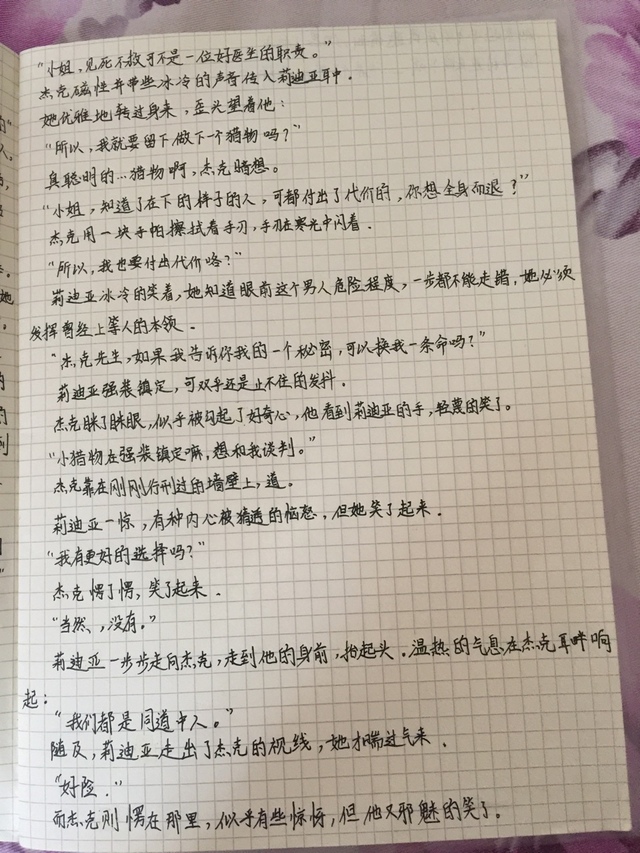 “小姐，见死不救可不是一位好医生的职责。”
杰克磁性并带些冰冷的声音传入莉迪亚耳中.
她优雅地转过身来，歪头望着他：
“所以，我就要留下做下一个猎物吗？”
真聪明的…猎物啊，杰克暗想。
“小姐，知道了在下的样子的人，可都付出了代价的，你想全身而退？”
杰克用一块手帕擦拭着手刃，手刃在寒光中闪着.
“所以，我也要付出代价咯？”
莉迪亚冰冷的笑着，她知道眼前这个男人危险程度，一步都不能走错，她必须
发挥曾经上等人的本领.
“杰克先生，如果我告诉你我的一个秘密，可以换我一条命吗？”
莉迪亚强装镇定，可双手还是止不住的发抖.
杰克眯了眯眼，似乎被勾起了好奇心，他看到莉迪亚的手，轻蔑的笑了。
“小猎物在强装镇定嘛，想和我谈判。”
杰克靠在刚刚行刑过的墙壁上，道。
莉迪亚一惊，有种内心被猜透的恼怒，但她笑了起来.
“我有更好的选择吗？”
杰克愣了愣，笑了起来.
“当然，没有。”
莉迪亚一步步走向杰克，走到他的身前，抬起头.温热的气息在杰克耳畔响
起：
“我们都是同道中人。”
随及，莉迪亚走出了杰克的视线，她才喘过气来.
“好险.”
而杰克则愣在那里，似乎有些惊讶，但他又邪魅的笑了。